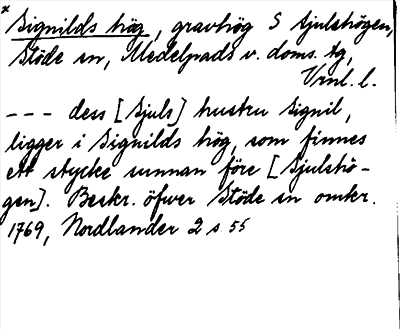 * Signilds hög, gravhög S Sjulshögen,
Stöde sn, Medelpads v. doms. tg,
Vrnl. l.
--- dess [Sjuls] hustru Signil,
ligger i Signilds hög, som finnes
ett stycke sunnan före [Sjulshö-
gen]. Beskr. öfwer Stöde sn omkr.
1769, Nordlander 2 s. 55